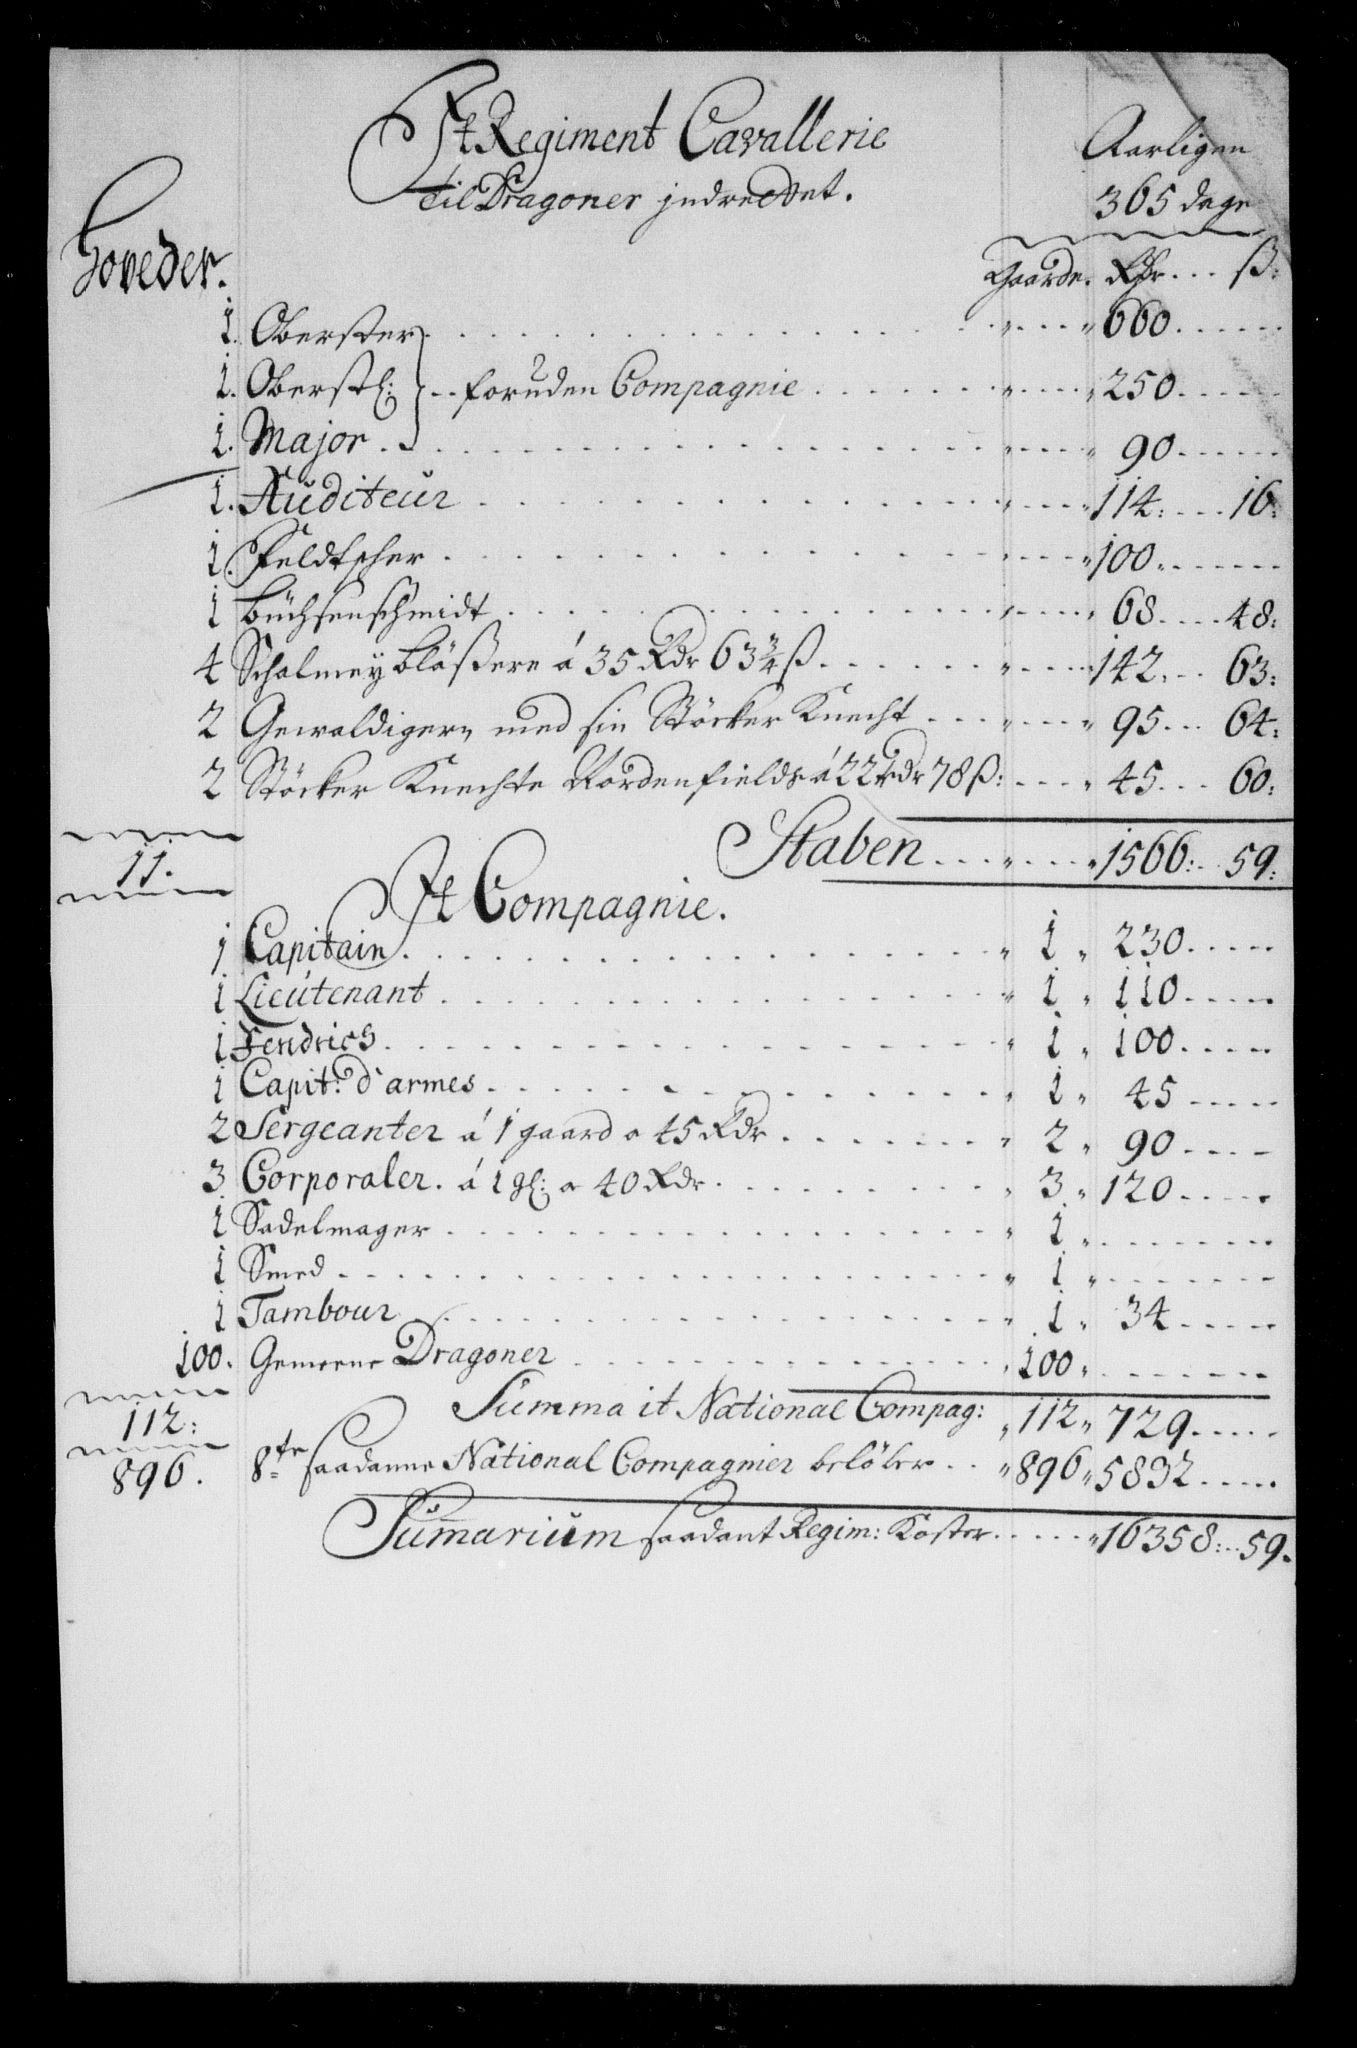 It Regiment Cavallerie
til Dragoner jndrettet.
Aarligen
365 dage
Hoveder.
Gaarde. Rdr ... ß:
1. Oberster . . . " . . . " 660 . . .
1. Oberstl: } .. foruden Compagnie . . . " . . . " 250 . . .
1. Major . . . " . . . " 90 . . .
1. Auditeur . . . " . . . " 114: . . . 16:
1. Feldtscher . . . " . . . " 100 . . .
1 Büchsenschmidt . . . " . . . " 68 . . . 48:
4 Schalmeyblößere á 35 Rdr 63 3/4 ß . . . " . . . 142 . . . 63:
2 Gewaldigern med sin Stöcker Knecht . . . " . . . " 95 . . . 64:
2 Stöcker Knechte Nordenfields á 22 Rdr 78 ß: . . . " 45 . . . 60:
11.
Staben . . . " . . . " 1566: . . 59:
It Compagnie.
1 Capitain . . . " 1 " 230 . . .
1 Lieutenant . . . " 1 " 110 . . .
1 Fendrich . . . " 1 " 100 . . .
1 Capit: d'armes . . . " 1 " 45 . . .
2 Sergeanter á 1 gaard a 45 Rdr . . . " 2 " 90 . . .
3 Corporaler. á 1 gl: a 40 Rdr . . . " 3 " 120 . . .
1 Sadelmager . . . " 1 " . . .
1 Smed . . . " 1 " . . .
1 Tambour . . . " 1 " 34 . . .
100. Gemeene Dragoner . . . " 100 " . . .
112: Summa it National Compag: " 112 " 729 . . .
896. 8te saadanne National Compagnier belöber . . " 896 " 5832 . . .
Summarium saadant Regim: Koster . . . " 16358: . . 59.